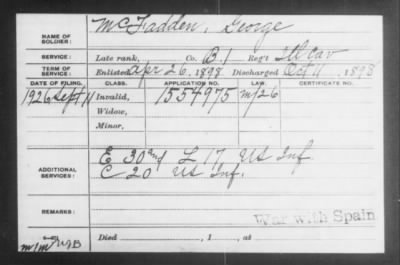 NAME OF SOLDIER: McFadden, George
SERVICE: Late rank, Co. B. 1 Reg't Ill Cav
TERM OF SERVICE: Enlisted Apr 26, 1898 Discharged Oct 11, 1898
DATE OF FILING. CLASS. APPLICATION NO. LAW. CERTIFICATE NO.
1926 Sept 11 Invalid, 1554975 m/26
Widow,
Minor,
ADDITIONAL SERVICES: E 30 and L 17, US Inf.
C 20 US Inf.
REMARKS: War with Spain
Died , 1 , at